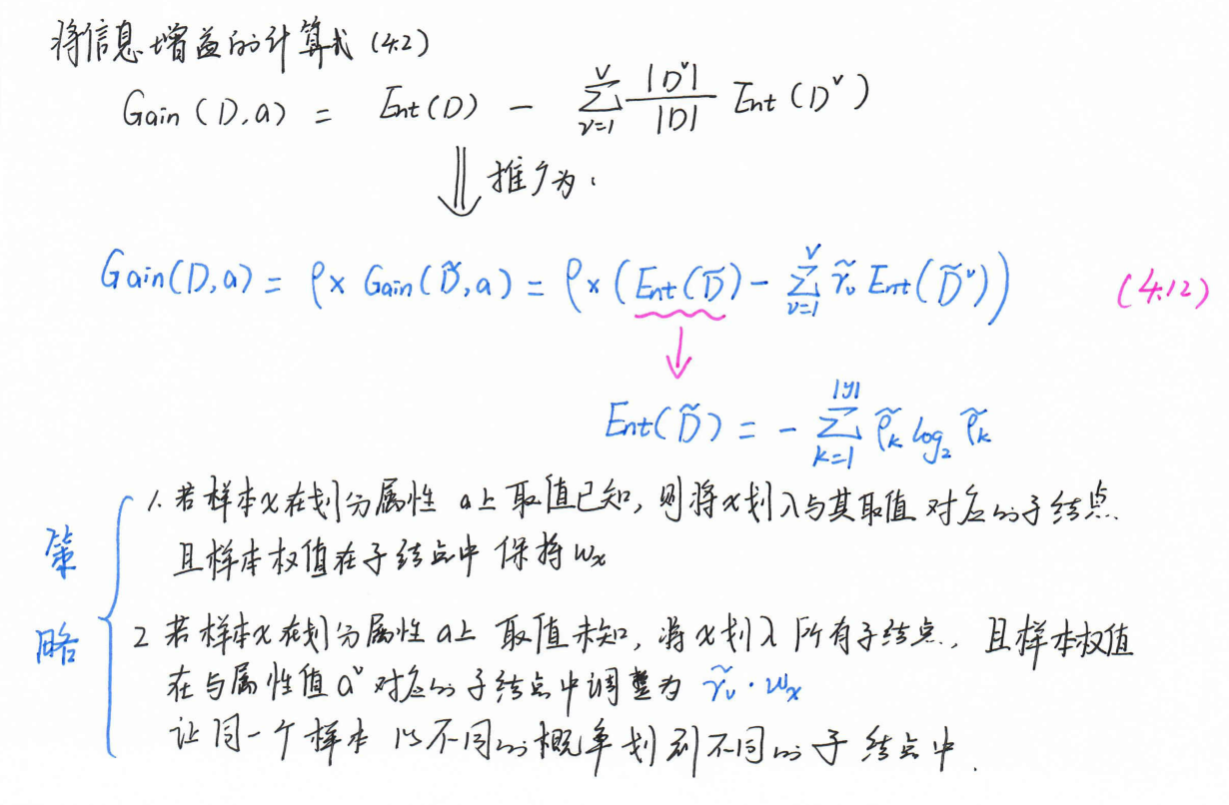 将信息增益的计算式 (4.2)
Gain (D,a) = Ent(D) - ∑_{v=1}^{V} |D^v|/|D| Ent(D^v)
⇓ 推广为:
Gain(D,a) = ρ × Gain(D̃,a) = ρ × (Ent(D̃) - ∑_{v=1}^{V} r̃_v Ent(D̃^v)) (4.12)
↓
Ent(D̃) = - ∑_{k=1}^{|y|} p̃_k log_2 p̃_k
策略
1. 若样本x在划分属性 a上取值已知, 则将x划入与其取值对应的子结点
且样本权值在子结点中 保持 w_x
2 若样本x在划分属性 a上 取值未知, 将x划入所有子结点, 且样本权值
在与属性值 a^v 对应的子结点中调整为 r̃_v · w_x
让同一个样本 以不同的概率划到不同的子结点中.